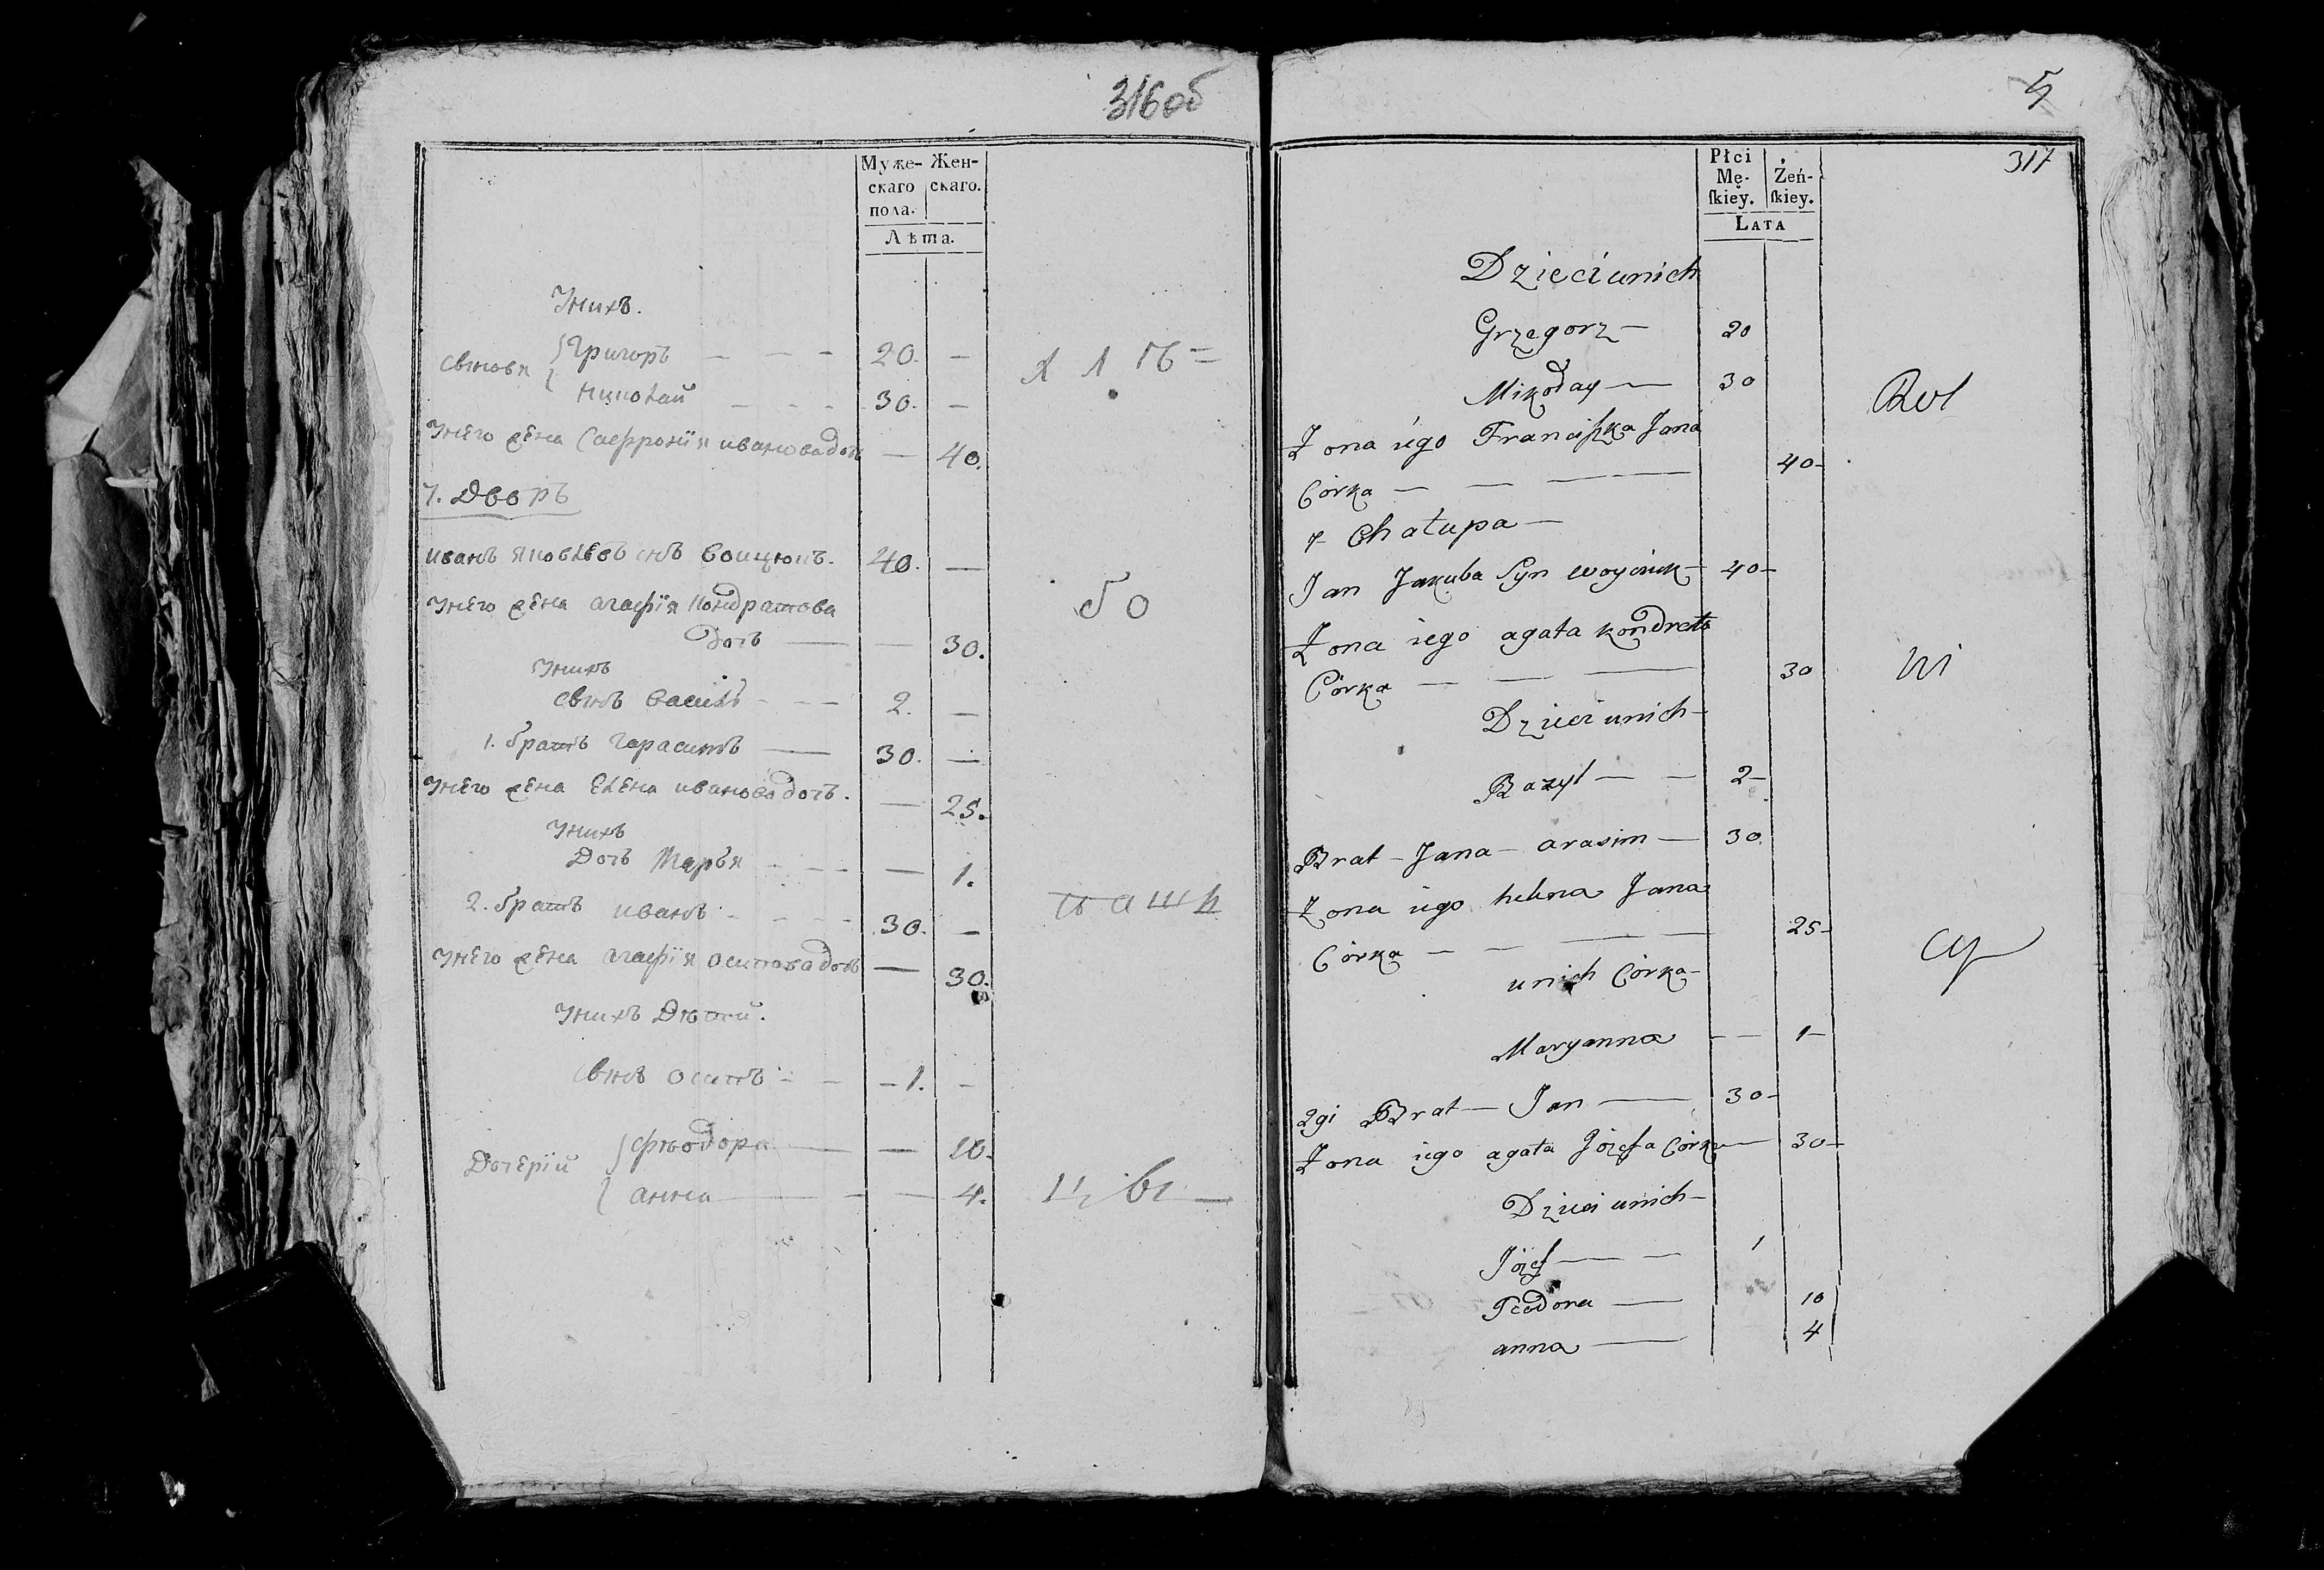 316об
Муже- Жен-
скаго скаго.
пола.
Лѣта.
Унихъ.
Сыновья Григоръ — — — 20. —
Николай — — — 30. —
Унего жена Сафронiя иванова дочь — 40.
7. Дворъ
иванъ яковлевъ снъ Войцюкъ. 40. —
Унего жена агафiя кондратова
Дочь — — 30.
Унихъ
Сынъ василь — — — 2. —
1. братъ Герасимъ — 30. —
Унего жена Елена иванова дочь. — 25.
Унихъ
Дочь Марья — — — — 1.
2. братъ иванъ — — — 30. —
Унего жена агафiя осипова дочь — 30.
Унихъ Дѣтий.
Сынъ осипъ — — — 1. —
Дочерiй Фѣодора — — 10.
анна — — — 4.
бо
5
317
Płci
Mę- Żeń-
ſkiey. ſkiey.
LATA
Dzieci unich
Grzegorz — 20
Mikołay — 30
Rol
Żona iego Franciszka Jana
Córka — — — 40 —
7 Chałupa —
Jan Jakuba Syn woyciuk — 40 —
Żona iego agata kondrata
Córka — — — 30
ni
Dzieci unich —
Bazyl — — 2 —
Brat — Jana — arasim — 30.
Żona iego helena Jana
Córka — — — 25 —
cy
unich Córka —
Maryanna — — 1 —
2gi Brat — Jan — 30 —
Żona iego agata Józefa Córka — 30 —
Dzieci unich —
Józef — — 1
Teodora — 10
anna — 4